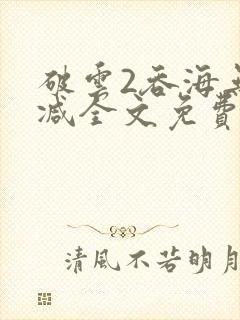 破雲2吞海
减全文免費
清風不若明月